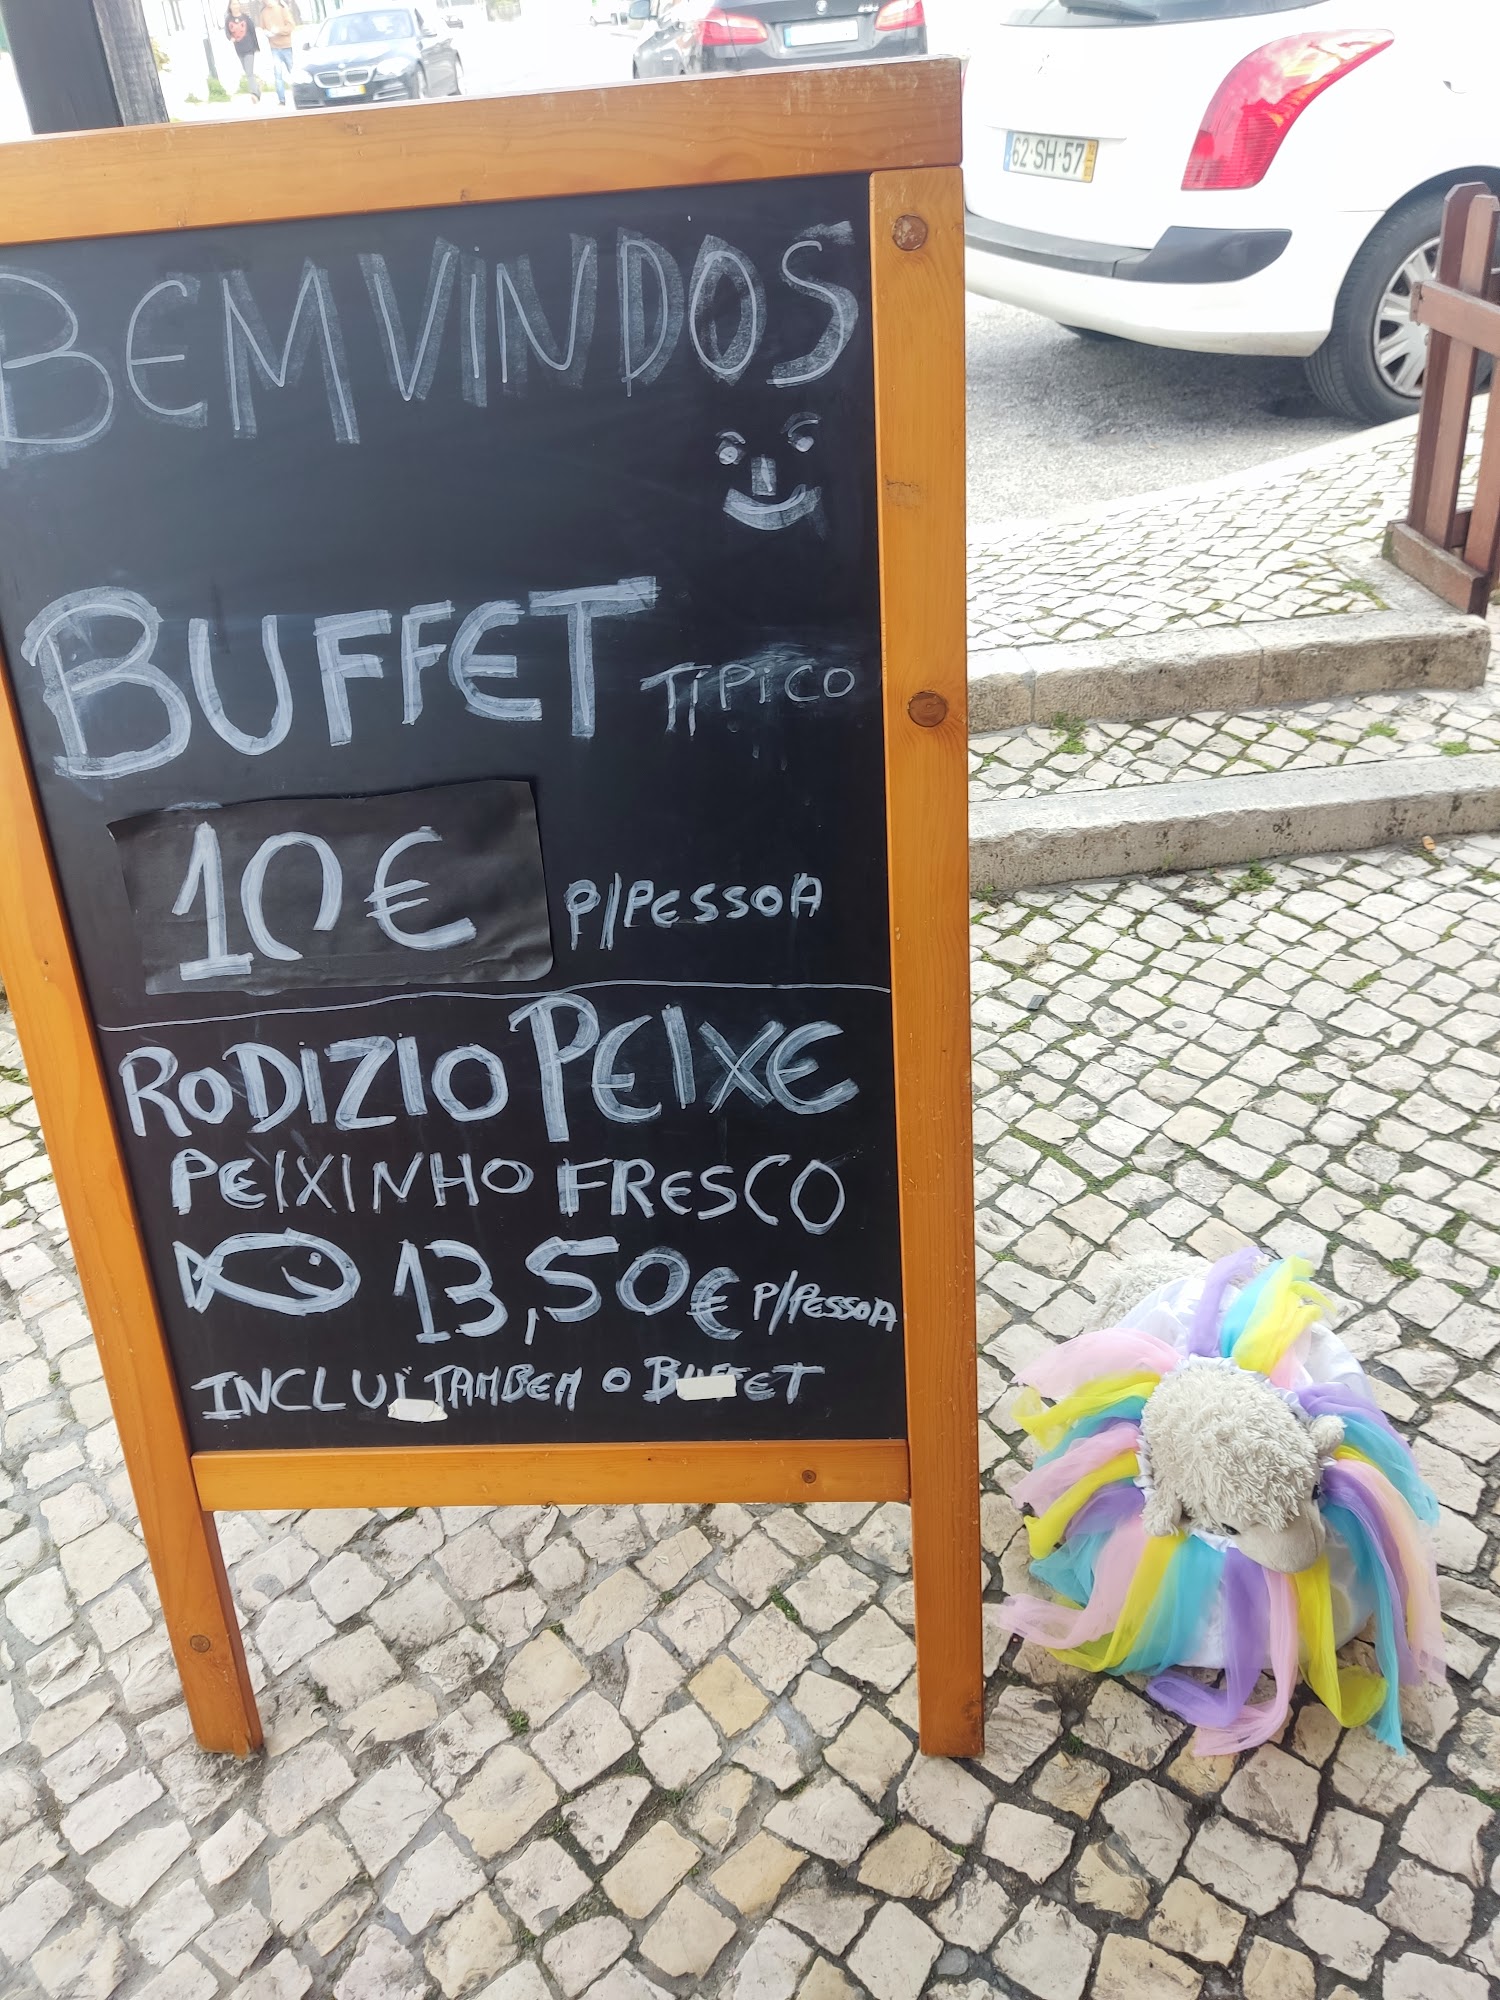 62·SH·57
BEMVINDOS
BUFFET TÍPICO
10€ P/PESSOA
RODIZIO PEIXE
PEIXINHO FRESCO
13,50€ P/PESSOA
INCLUI TAMBEM O BUFFET